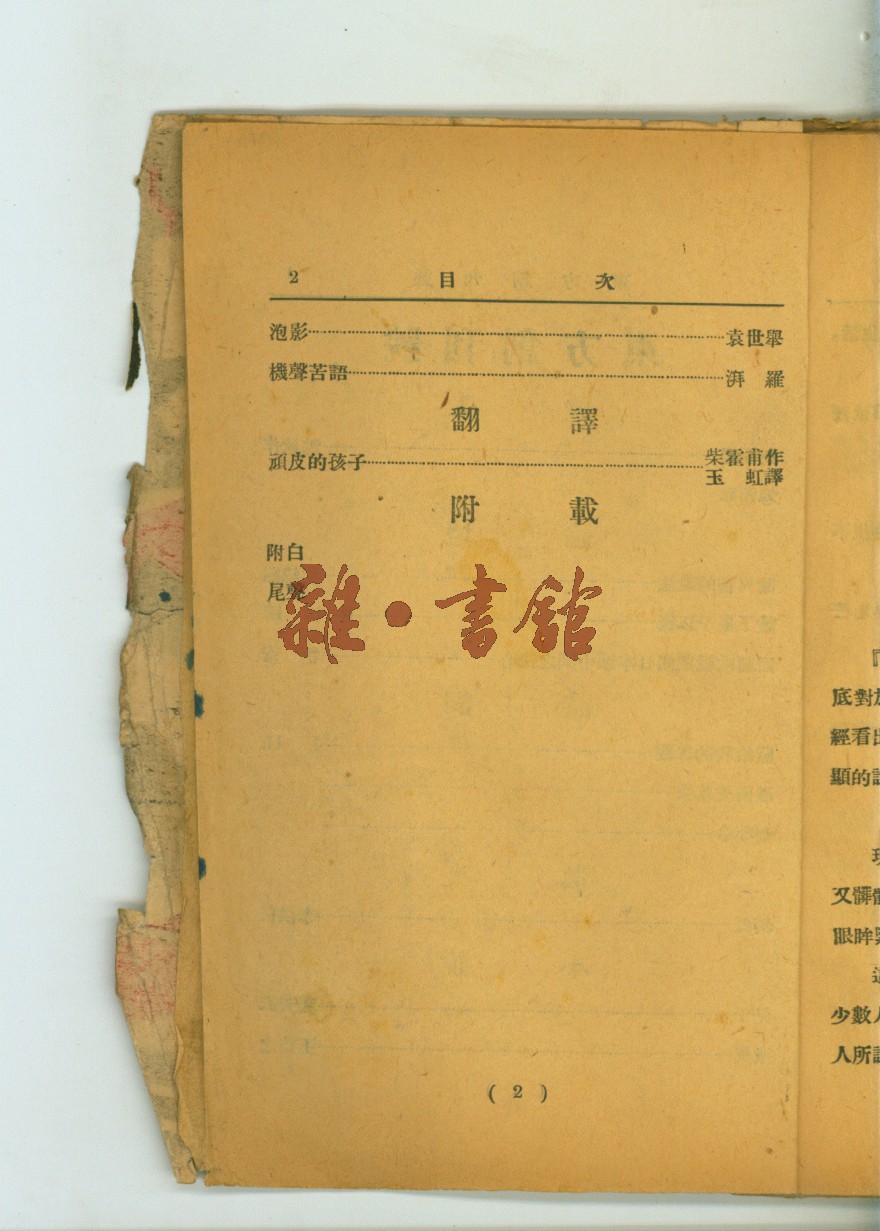 2 目 次
泡影……袁世舉
機聲苦語……湃 羅
翻 譯
頑皮的孩子……柴霍甫作
玉 虹譯
附 載
附白
尾聲
雜·書館
( 2 )
『
底對
經看出
顯的
又髒
眼眸
這
少數人
人所